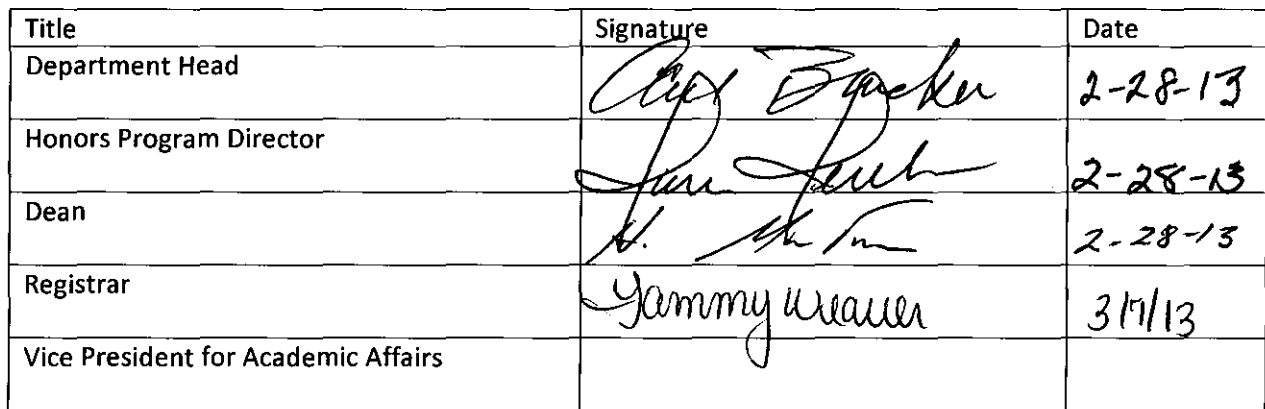 Title Signature Date
Department Head 2-28-13
Honors Program Director 2-28-13
Dean H. 2-28-13
Registrar Tammy Weaver 3/7/13
Vice President for Academic Affairs